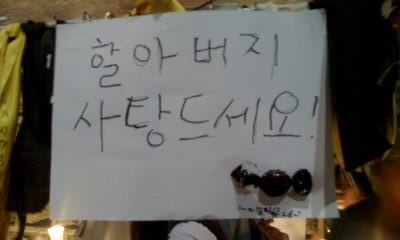 할아버지
사탕드세요!